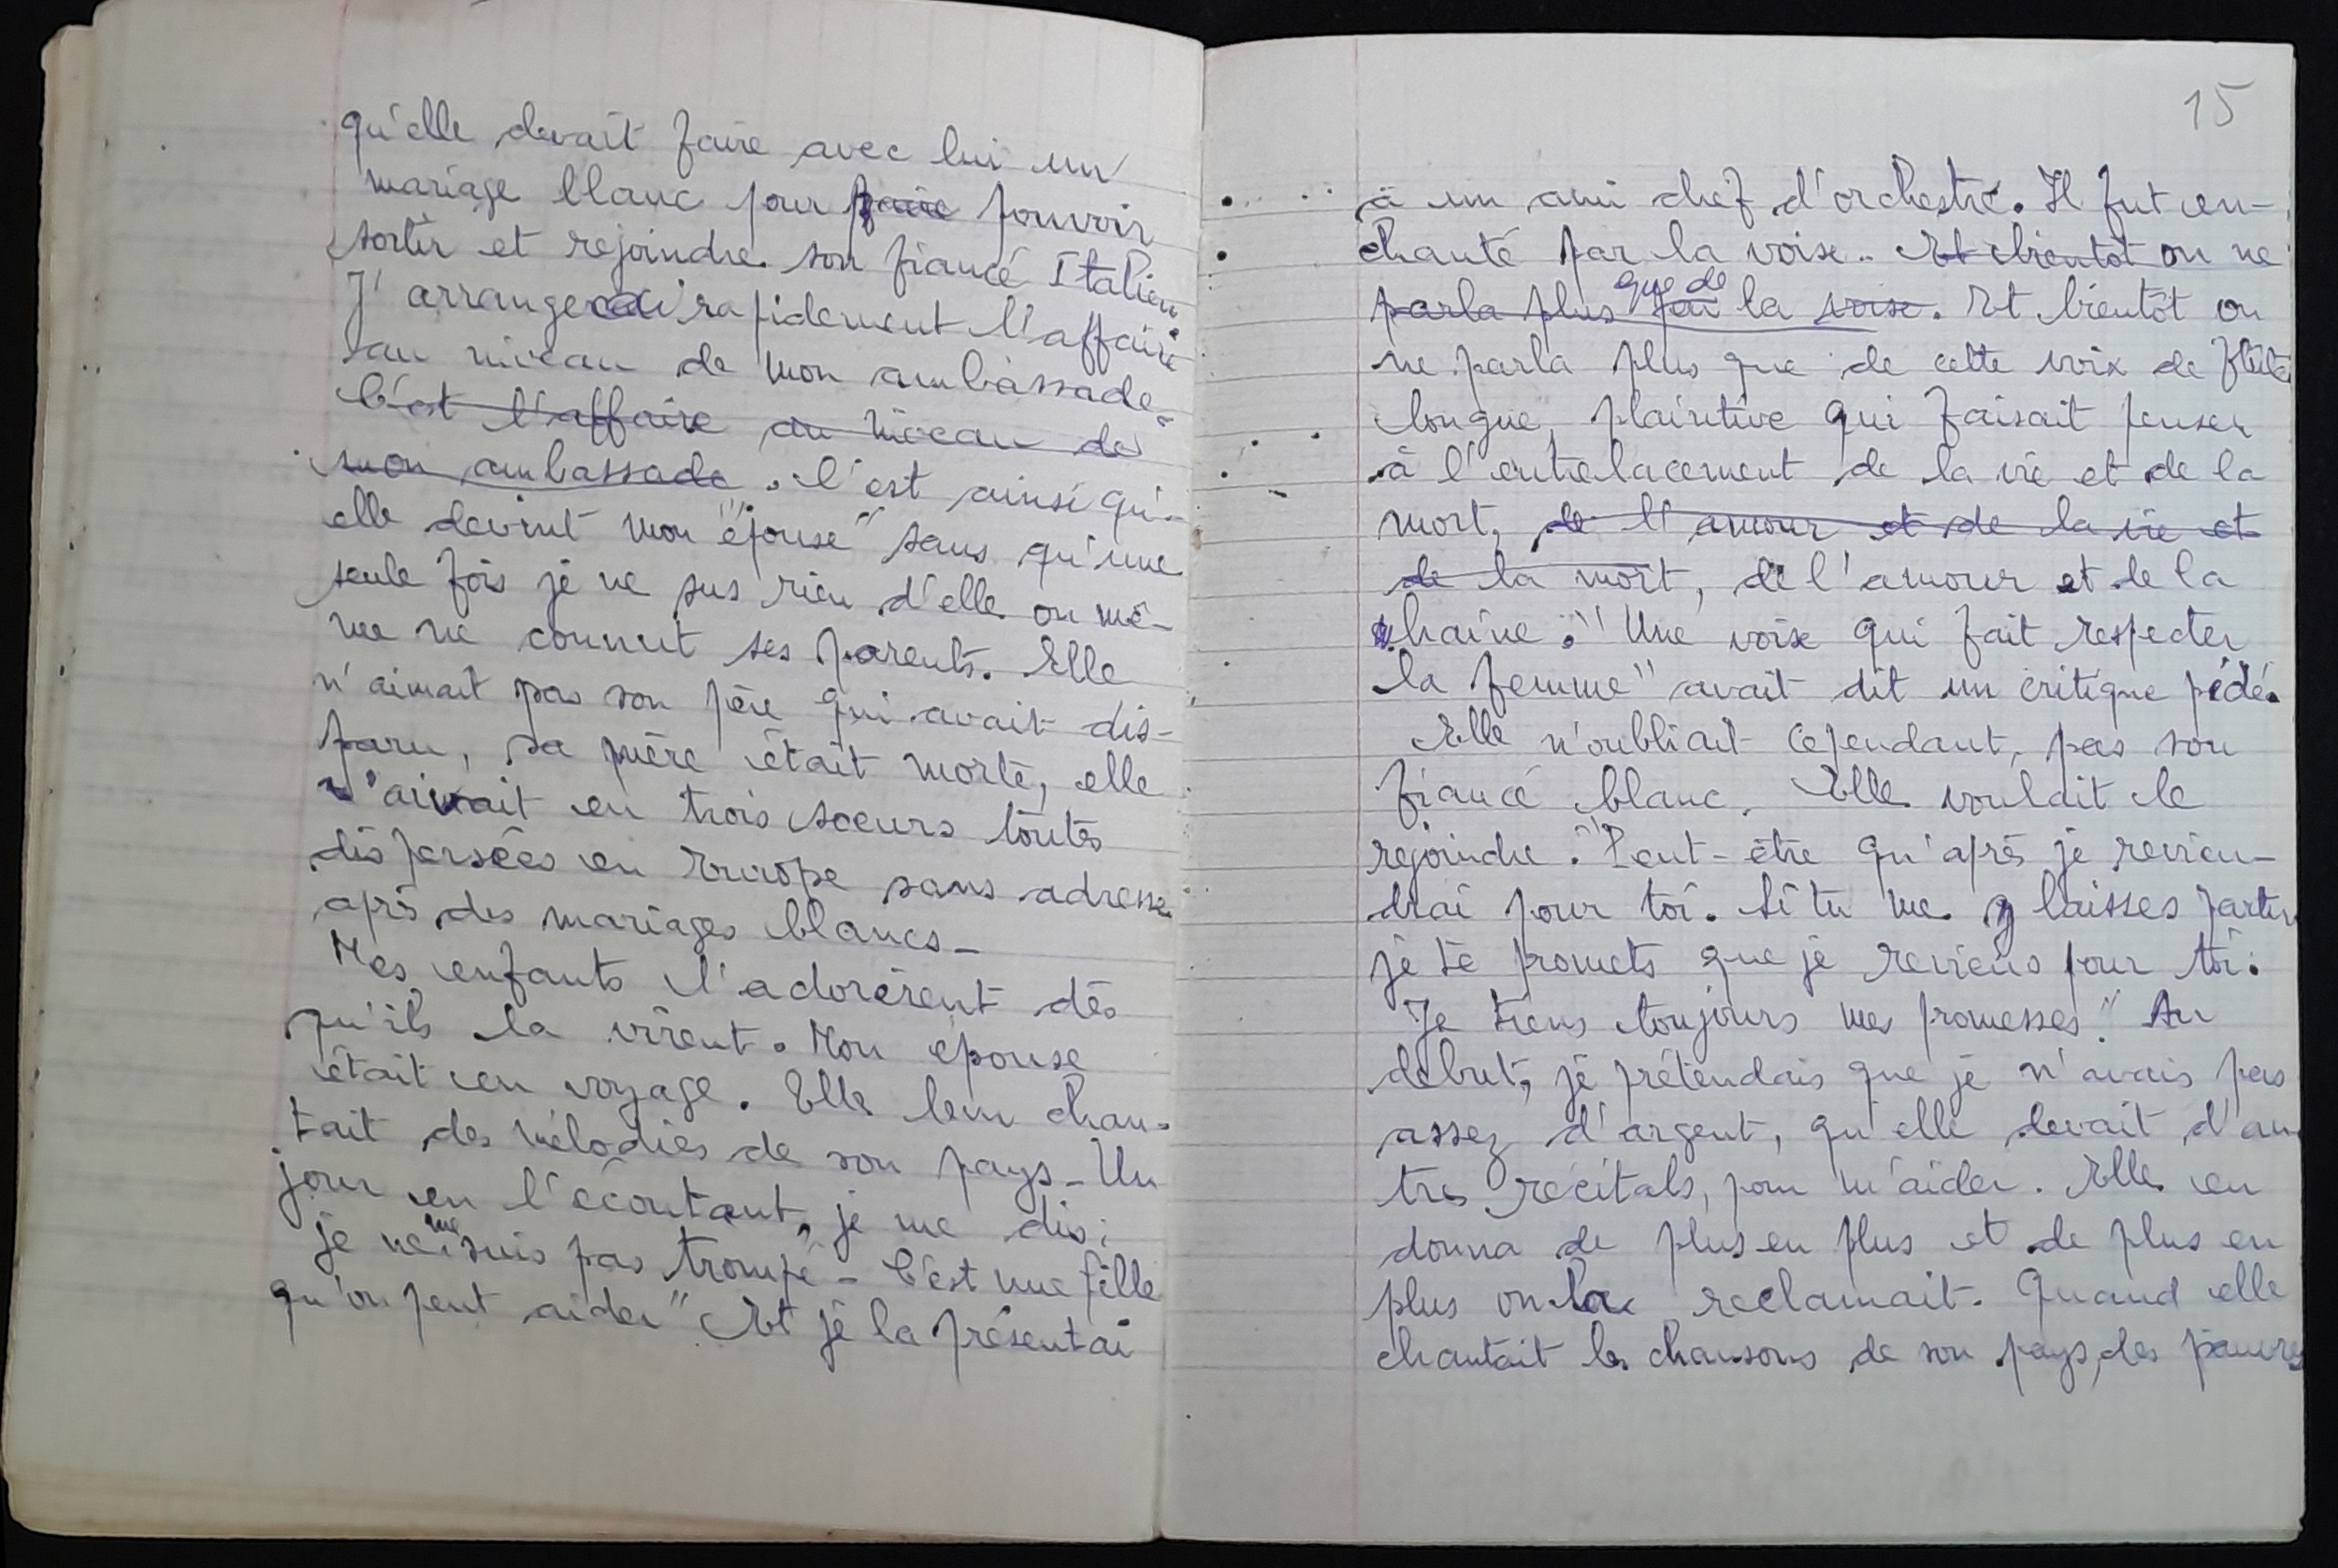 qu'elle devait faire avec lui un
mariage blanc pour faire pouvoir
sortir et rejoindre son fiancé Italien
J'arrangeai rapidement l'affaire
au niveau de mon ambassade.
C'est l'affaire au niveau de
mon ambassade. C'est ainsi qu'-
elle devint mon "épouse" sans qu'une
seule fois je ne sus rien d'elle ou mê-
me ne connut ses parents. Elle
n'aimait pas son père qui avait dis-
paru, sa mère était morte, elle
avait eu trois soeurs toutes
dispersées en Europe sans adresse
après des mariages blancs_
Mes enfants l'adorèrent dès
qu'ils la virent. Mon épouse
était en voyage. Elle leur chan-
tait des mélodies de son pays_ Un
jour en l'écoutant, je me dis:
je ne me suis pas trompé_ C'est une fille
qu'on peut aider" Et je la présentai
15
à un ami chef d'orchestre. Il fut en-
chanté par la voix.. Et bientôt on ne
parla plus que de la voix. Et bientôt on
ne parla plus que de cette voix de flûte
longue, plaintive qui faisait penser
à l'entrelacement de la vie et de la
mort, de l'amour et de la vie et
de la mort, de l'amour et de la
haine. "Une voix qui fait respecter
la femme" avait dit un critique pédé.
Elle n'oubliait cependant, pas son
fiancé blanc. Elle voulait le
rejoindre. "Peut-être qu'après je revien-
drai pour toi. Si tu me laisses partir
je te promets que je reviens pour toi.
Je tiens toujours mes promesses" Au
debut, je prétendais que je n'avais pas
assez d'argent, qu'elle devait d'au
tres récitals, pour m'aider. Elle en
donna de plus en plus et de plus en
plus on la reclamait. Quand elle
chantait les chansons de son pays, des pauvres